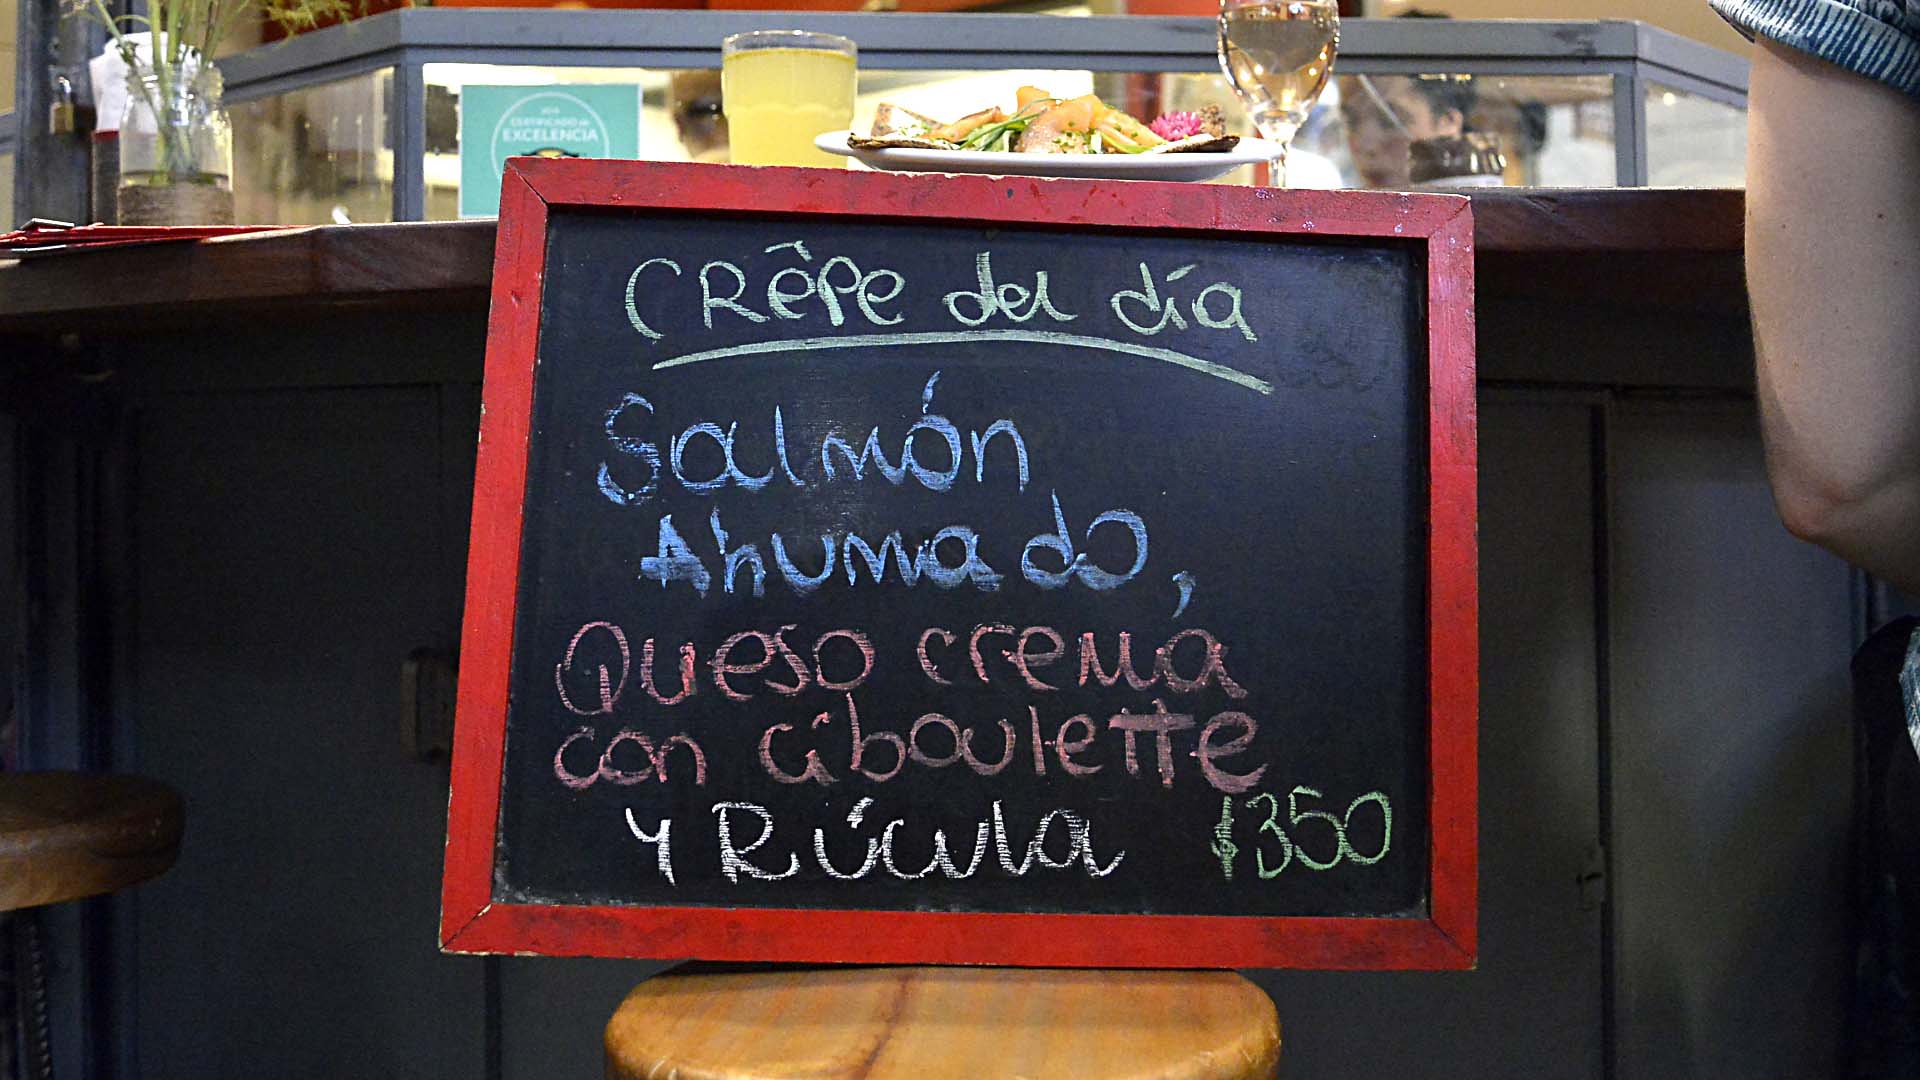 CERTIFICADO de
EXCELENCIA
CRêPe del día
Salmón
Ahumado,
Queso crema
con ciboulette
y Rúcula $350